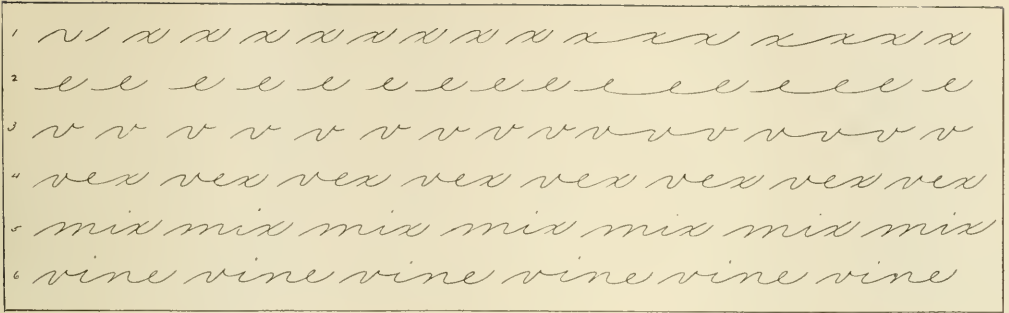 1 x x x x x x x x x x x x x x x
2 e e e e e e e e e e e e e e e e e
3 v v v v v v v v v v v v v v v v
4 vex vex vex vex vex vex vex vex
5 mix mix mix mix mix mix mix
6 vine vine vine vine vine vine